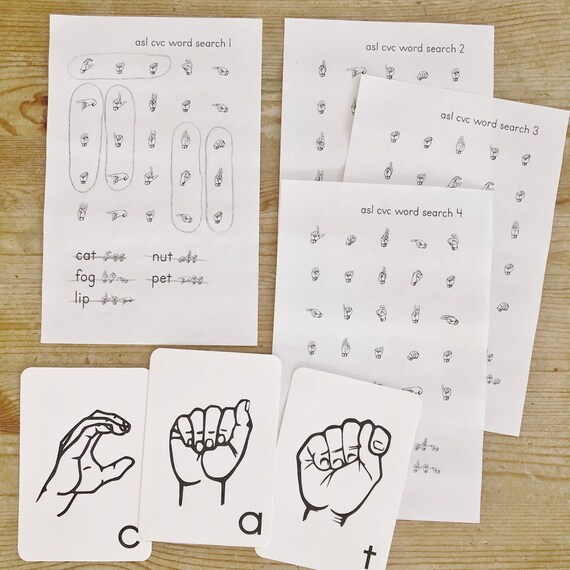 asl cvc word search 1
cat nut
fog pet
lip
asl cvc word search 2
asl cvc word search 3
asl cvc word search 4
c
a
t